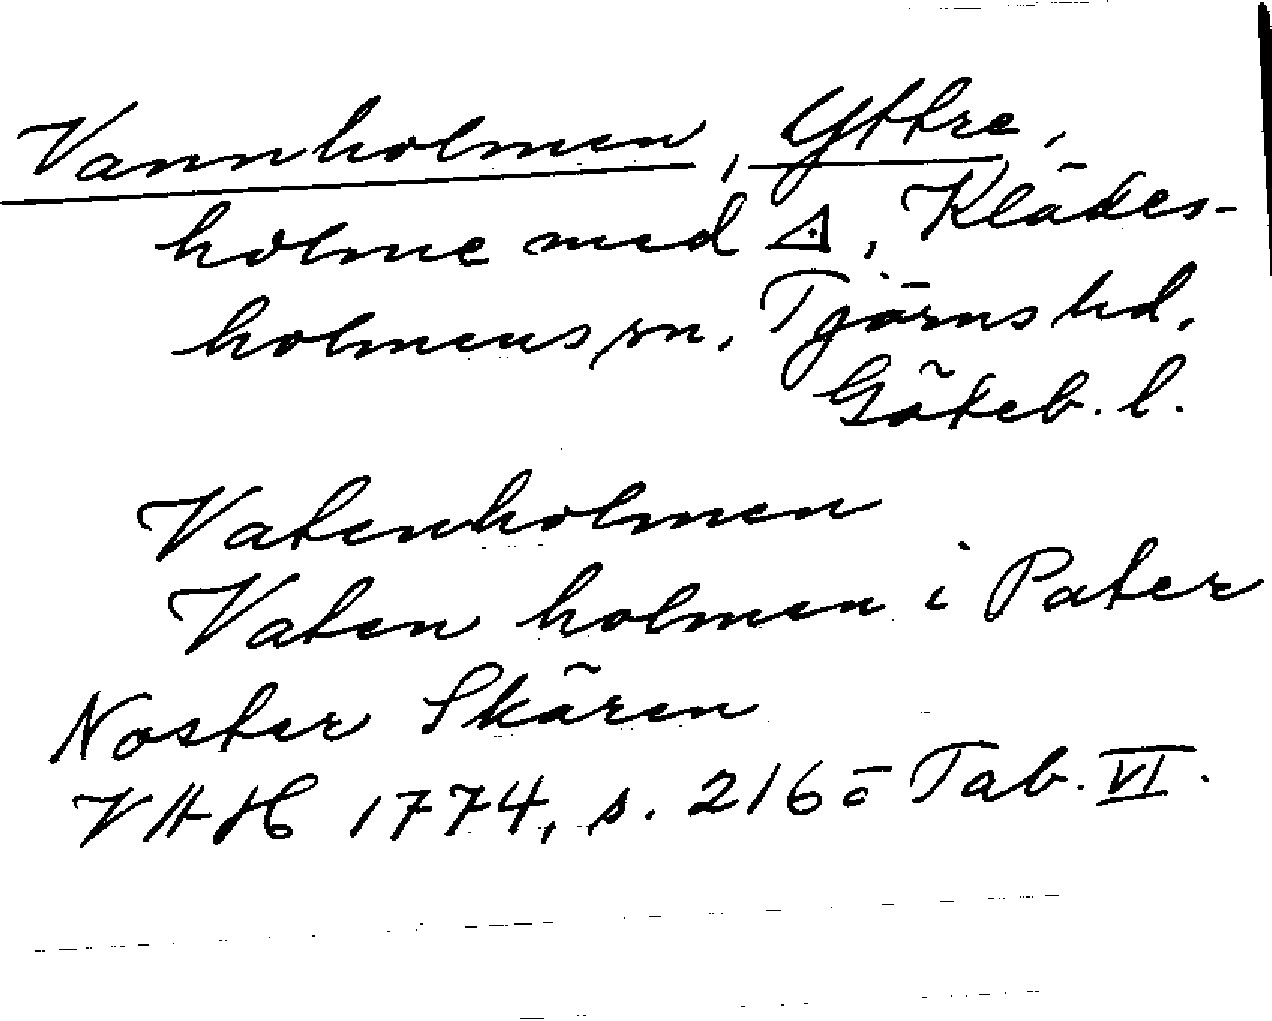 Vannholmen, Yttre,
holme med ⚠, Klädes-
holmens sn, Tjörns hd,
Göteb. l.
Vatenholmen
Vaten holmen i Pater
Noster Skären
VAH 1774, s. 216 o Tab. VI.